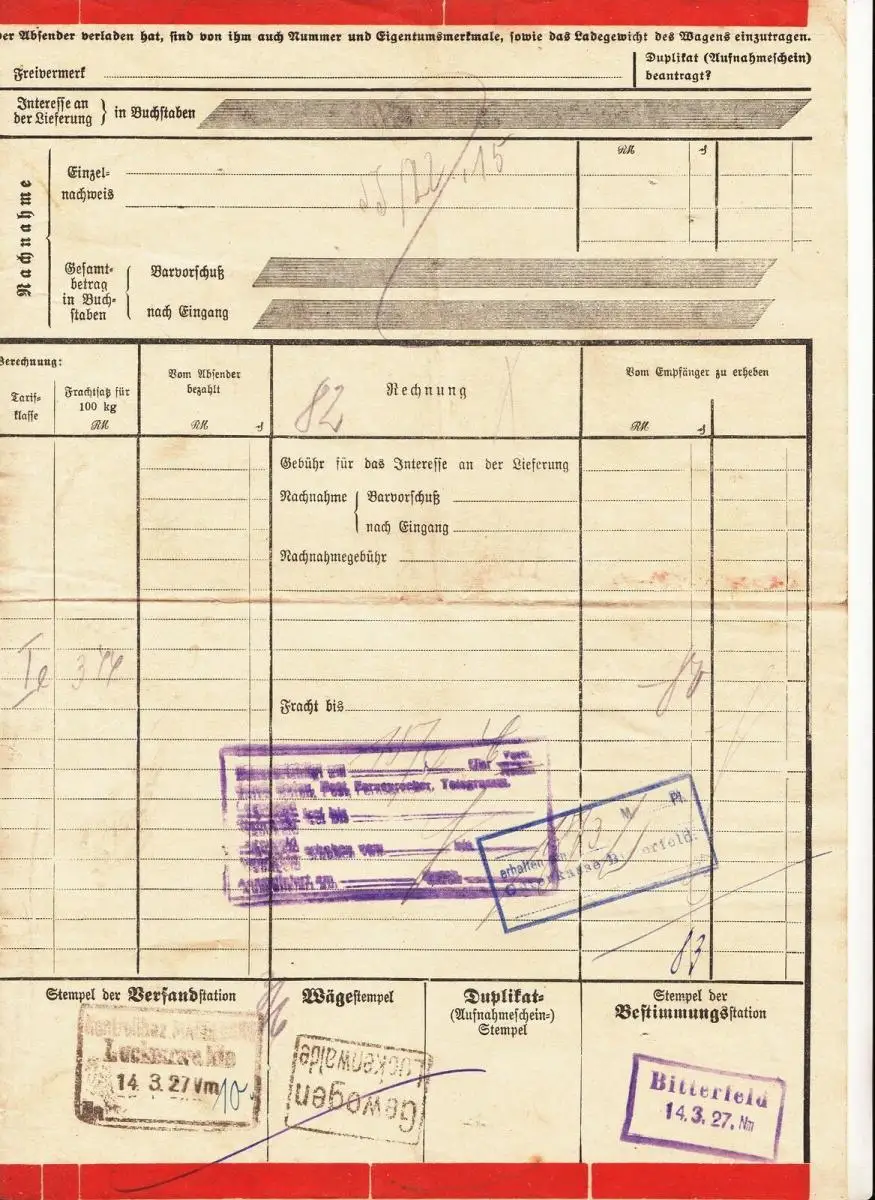 der Absender verladen hat, sind von ihm auch Nummer und Eigentumsmerkmale, sowie das Ladegewicht des Wagens einzutragen.
Freivermerk
Duplikat (Aufnahmeschein)
beantragt?
Interesse an
der Lieferung } in Buchstaben
Nachnahme
Einzel-
nachweis
RM
Gesamt-
betrag
in Buch-
staben
Barvorschuß
nach Eingang
Berechnung:
Tarif-
klasse
Frachtsatz für
100 kg
RM
Vom Absender
bezahlt
RM
82
Rechnung
Vom Empfänger zu erheben
RM
Gebühr für das Interesse an der Lieferung
Nachnahme { Barvorschuß
nach Eingang
Nachnahmegebühr
Fracht bis
Post, Fernsprecher, Telegramm.
M Pf.
erhalten
Bitterfeld.
83
Stempel der Versandstation
Wägestempel
Duplikat-
(Aufnahmeschein-)
Stempel
Stempel der
Bestimmungsstation
Luckenwalde
14.3.27 Vm
10
Gewogen
Luckenwalde
Bitterfeld
14.3.27. Nm